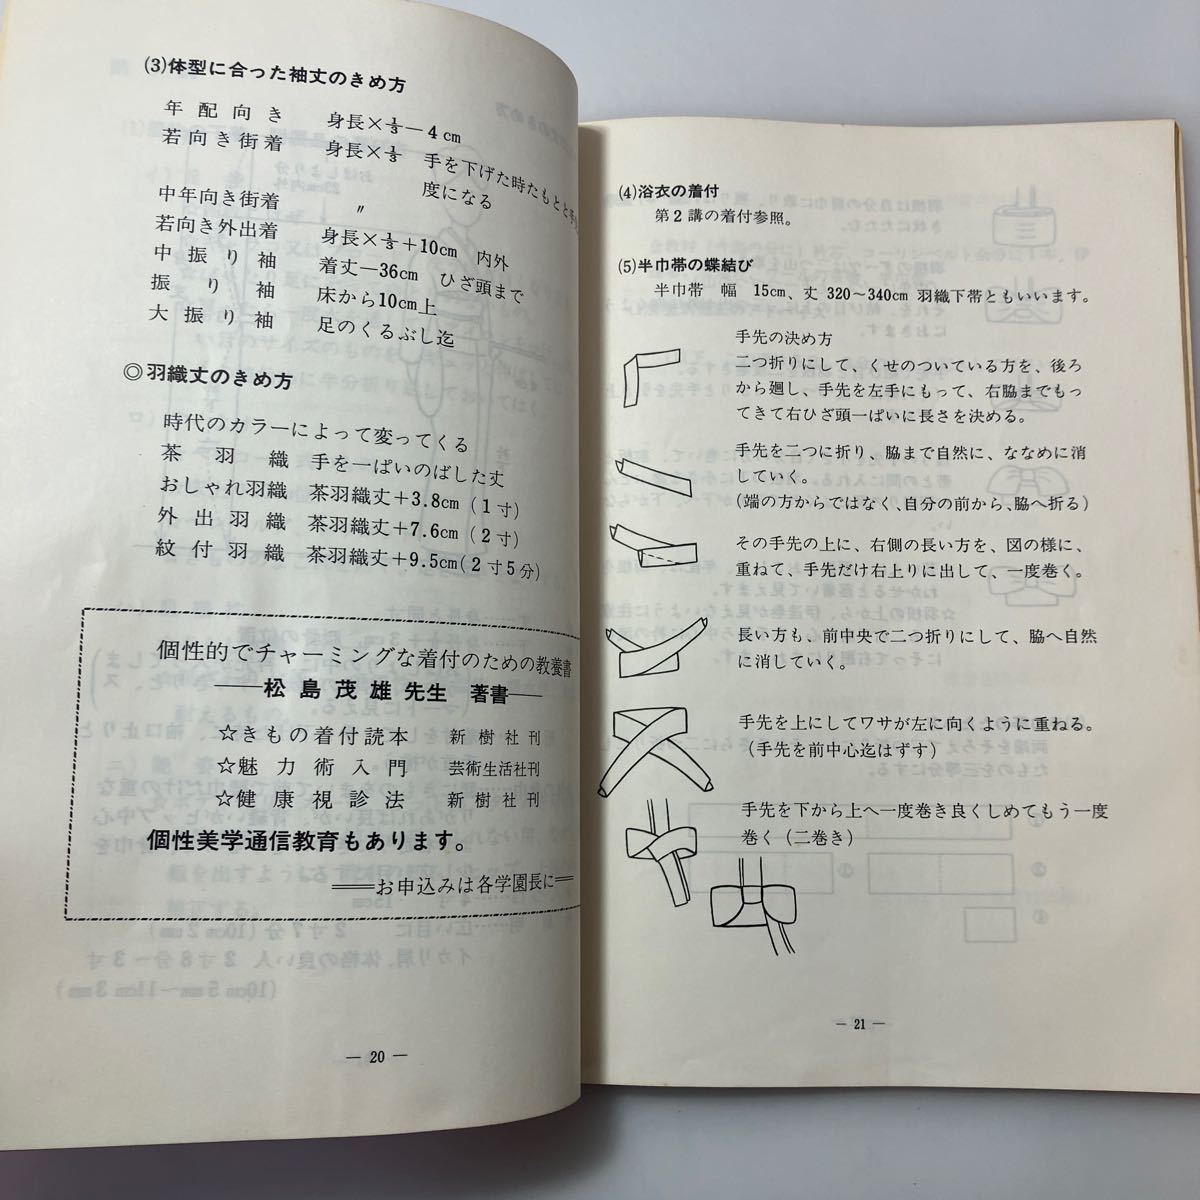 (3)体型に合った袖丈のきめ方
年配向き 身長×⅓−4cm
若向き街着 身長×⅓ 手を下げた時たもとと手
度になる
中年向き街着 〃
若向き外出着 身長×⅓+10cm 内外
中振り袖 着丈−36cm ひざ頭まで
振り袖 床から10cm上
大振り袖 足のくるぶし迄
◎羽織丈のきめ方
時代のカラーによって変ってくる
茶羽織 手を一ぱいのばした丈
おしゃれ羽織 茶羽織丈+3.8cm(1寸)
外出羽織 茶羽織丈+7.6cm(2寸)
紋付羽織 茶羽織丈+9.5cm(2寸5分)
個性的でチャーミングな着付のための教養書
――松島茂雄先生 著書――
☆きもの着付読本 新樹社刊
☆魅力術入門 芸術生活社刊
☆健康視診法 新樹社刊
個性美学通信教育もあります。
══お申込みは各学園長に══
― 20 ―
(4)浴衣の着付
第2講の着付参照。
(5)半巾帯の蝶結び
半巾帯 幅 15cm、丈 320〜340cm 羽織下帯ともいいます。
手先の決め方
二つ折りにして、くせのついている方を、後ろ
から廻し、手先を左手にもって、右脇までもっ
てきて右ひざ頭一ぱいに長さを決める。
手先を二つに折り、脇まで自然に、ななめに消
していく。
(端の方からではなく、自分の前から、脇へ折る)
その手先の上に、右側の長い方を、図の様に、
重ねて、手先だけ右上りに出して、一度巻く。
長い方も、前中央で二つ折りにして、脇へ自然
に消していく。
手先を上にしてワサが左に向くように重ねる。
(手先を前中心迄はずす)
手先を下から上へ一度巻き良くしめてもう一度
巻く(二巻き)
― 21 ―